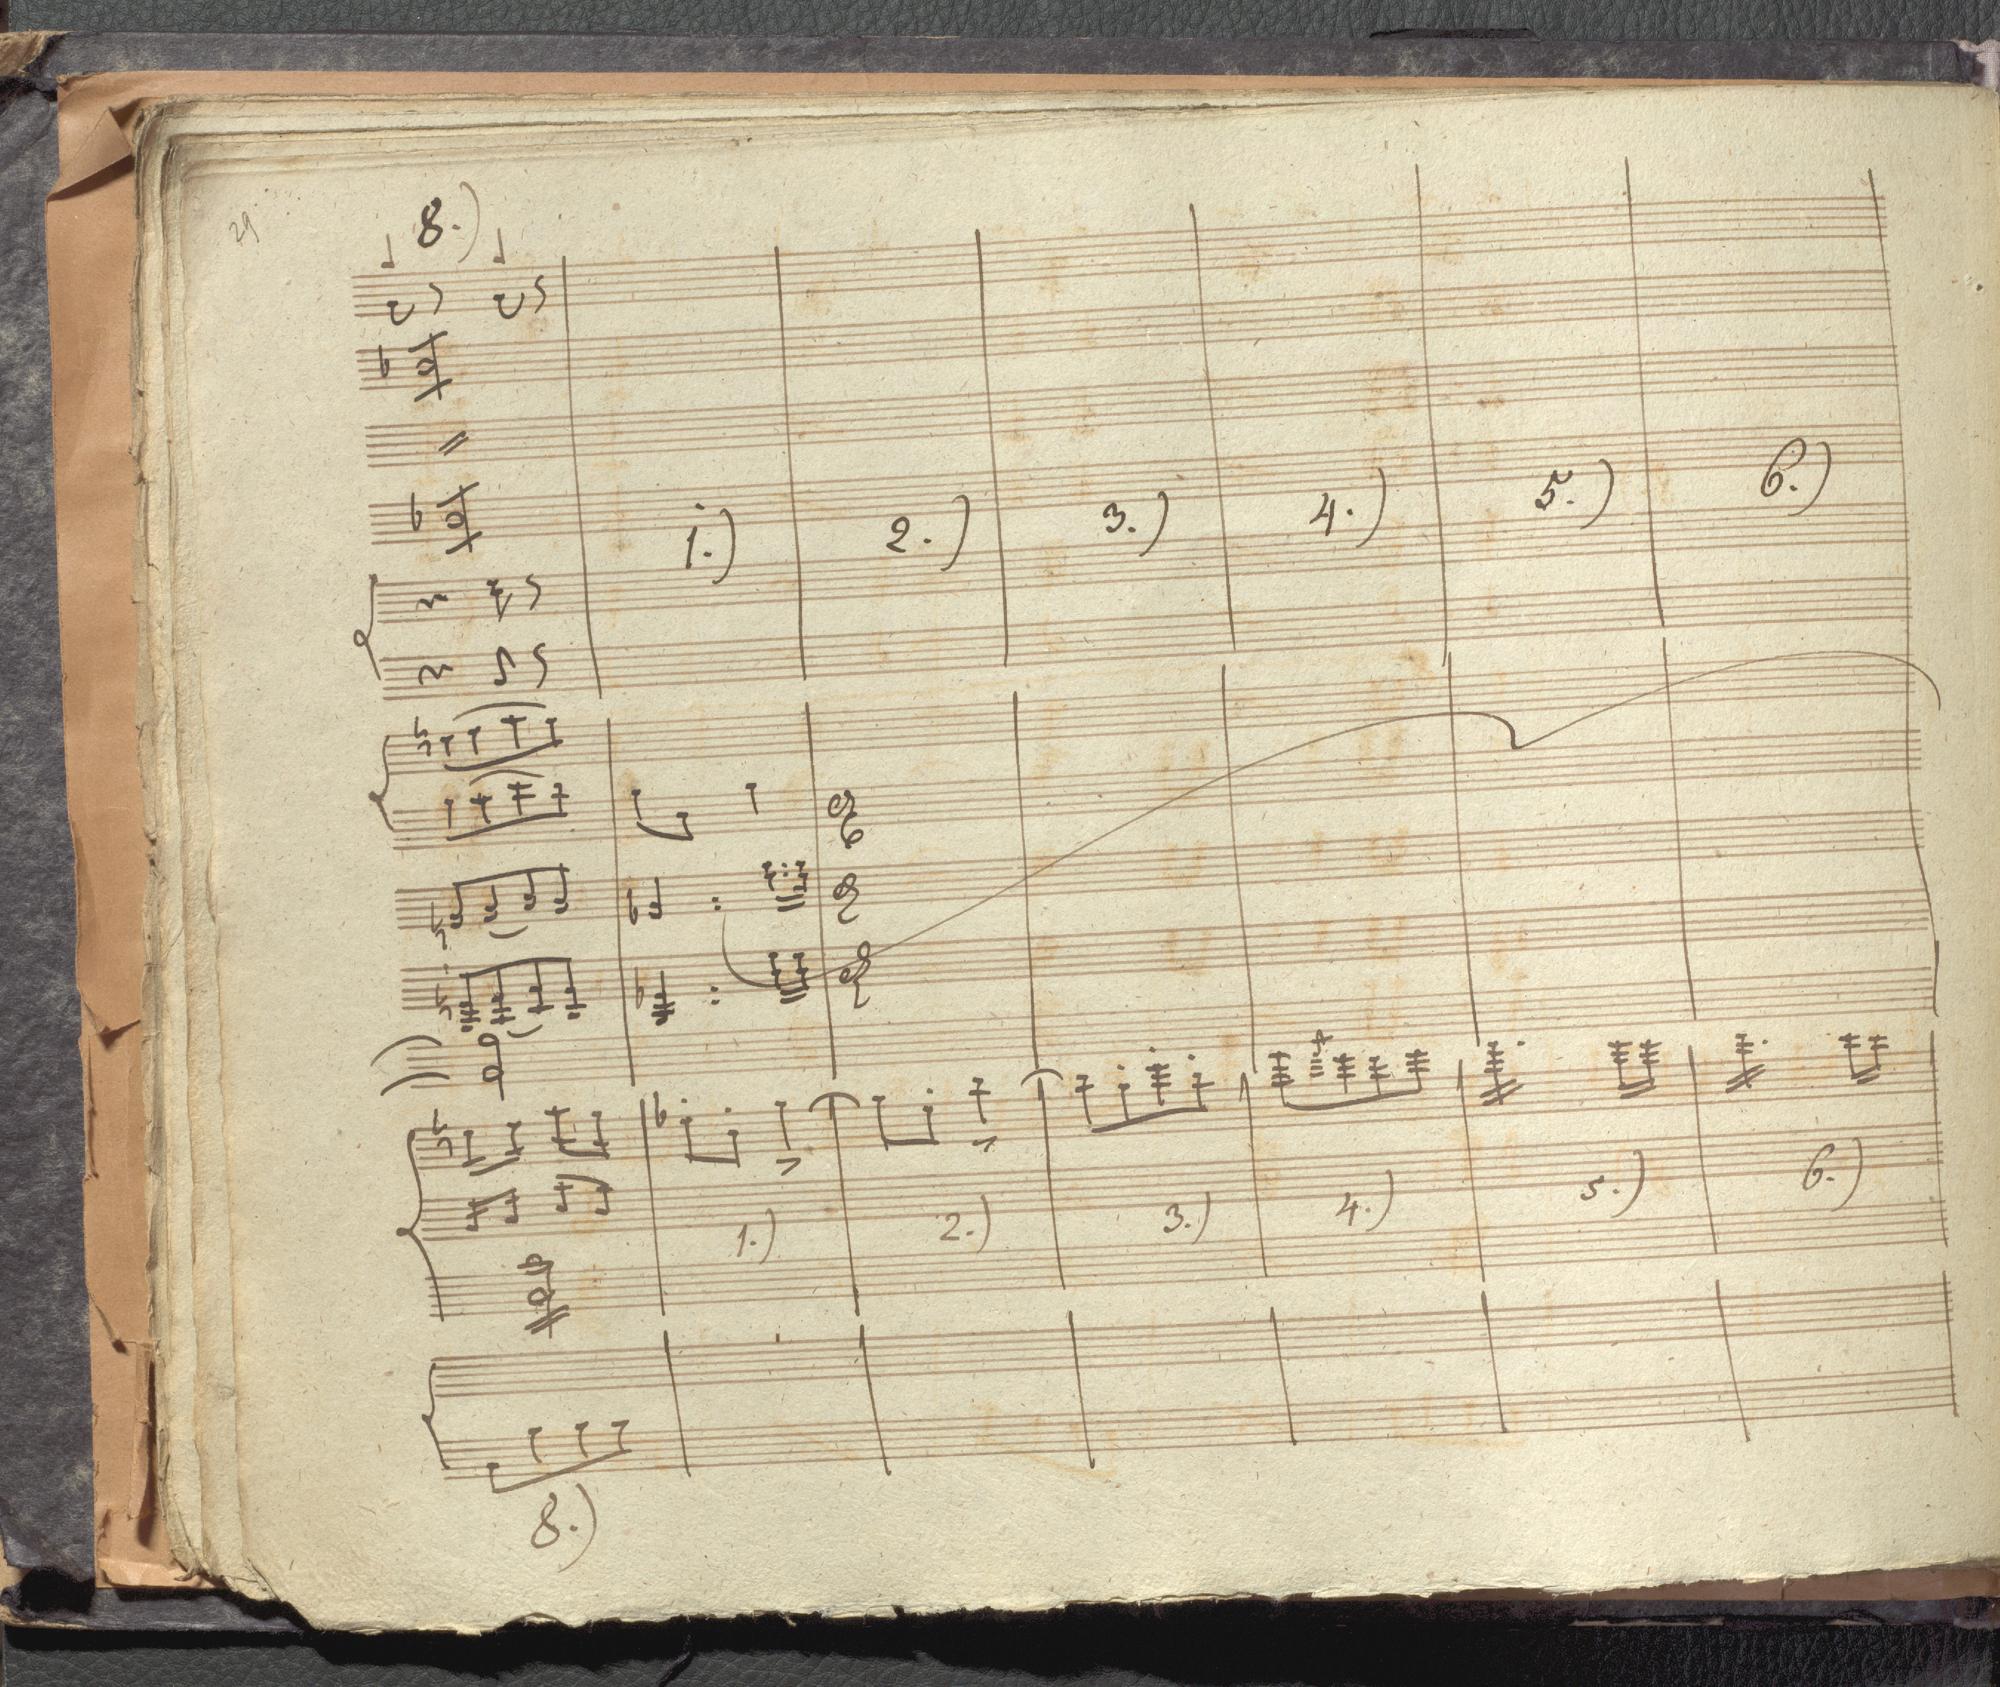 29
8.)
1.) 2.) 3.) 4.) 5.) 6.)
1.) 2.) 3.) 4.) 5.) 6.)
8.)